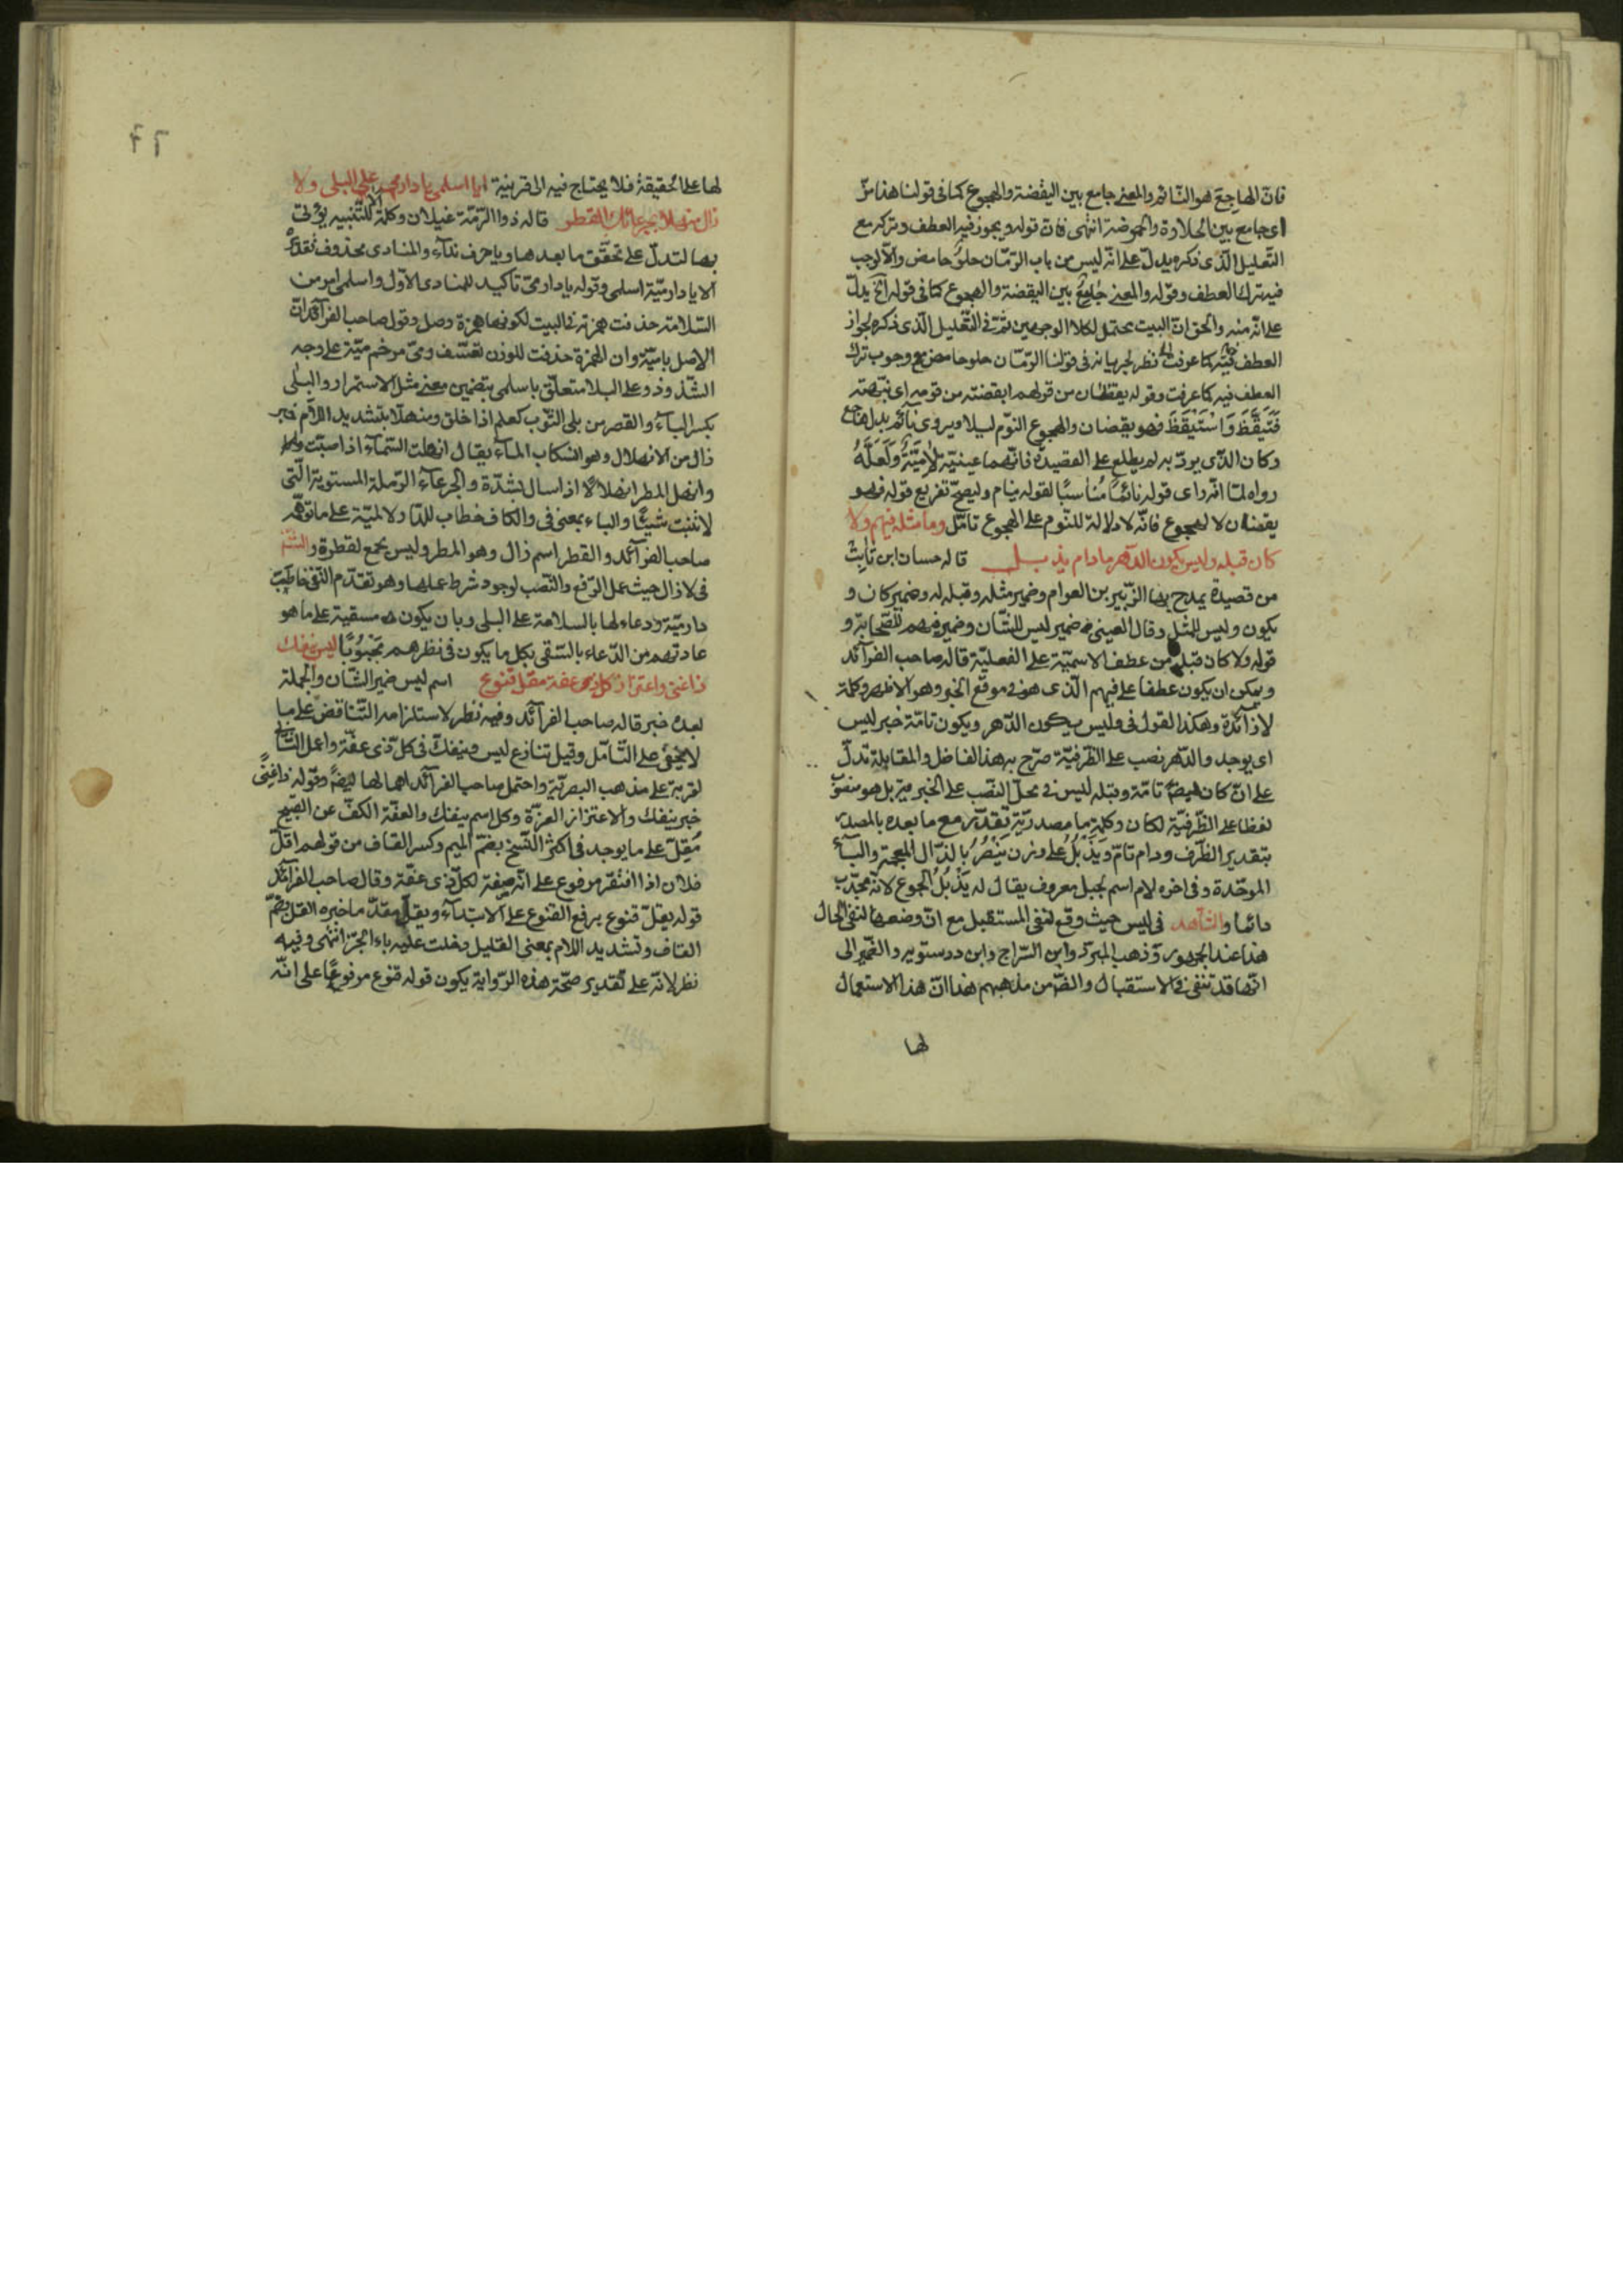 فانّ الهاجع هو النّائم والمعنى جامع بين اليقضة والهجوع كما فى قولنا هذا مزّ
اى جامع بين الحلاوة والحموضة انتهى فانّ قوله ويجوز فيه العطف وتركه مع
التّعليل الّذى ذكره يدلّ على انّه ليس من باب الرّمّان حلوٌ حامض والّا لوجب
فيه ترك العطف وقوله والمعنى جامعٌ بين اليقضة والهجوع كما فى قوله الخ يدلّ
على انّه منه والحق انّ البيت يحتمل لكلا الوجهين ثمّ فى التّعليل الّذى ذكره لجواز
العطف فيه كما عرفت نظر لجريانه فى قولنا الرّمّان حلو حامض مع وجوب ترك
العطف فيه كما عرفت وقوله يقظان من قولهم ايقضته من قومه اى نبّهته
فَتَيَقَّظَ وَاسْتَيْقَظَ فهو يقضان والهجوع النّوم ليلا ويروى نائم بدل هاجع
وكان الّذى يردّ به لم يطلع على القصيدة فانّهما عينيّة لاميّةٌ ولَعَلَّهُ
رواه لمّا انّه راى قوله نائمًا مُناسبًا لقوله ينام وليصحّ تفريع قوله فهو
يقضان لا لهجوع فانّه لا دلالة للنّوم على الهجوع تامّل وما مثله فيهم ولا
كان قبله وليس يكون الدّهر مادام يذبل قاله حسان ابن ثابت
من قصيدة يمدح بها الزّبير بن العوام وضمير مثله وقبله له وضمير كان و
يكون وليس للمثل وقال العينى ضمير ليس للشّان وضمير فيهم للصّحابة و
قوله ولا كان قبله من عطف الاسميّة على الفعليّة قاله صاحب الفرآئد
ويمكن ان يكون عطفا على فيهم الّذى هو فى موقع الخبر وهو الاظهر وكلمة
لا زآئدة وهكذا القول فى وليس يكون الدّهر ويكون تامّة خبر ليس
اى يوجد والدّهر نصب على الظّرفيّة صرّح به هذا الفاضل والمقابلة تدلّ
على انّ كان ايضًا تامّة وقبله ليس فى محلّ النّصب على الخبرية بل هو منصوب
لفظا على الظّرفيّة لكان وكلمة ما مصدريّة تقدّر مع ما بعده بالمصدر
بتقدير الظّرف ودام تامّ ويَذْبُلُ على وزن يَنْصُرُ بالذّال المعجمة والبآء
الموحّدة وفى اخره لام اسم لجبل معروف يقال له يَذْبُلُ الجوع لانّه مجدّب
دائما والشّاهد فى ليس حيث وقع لنفى المستقبل مع انّ وضعها لنفى الحال
هذا عند الجمهور وذهب المبرّد وابن السّراج وابن درستويه والضّمير الى
انّها قد تنفى فى الاستقبال والضّ من مذهبهم هذا انّ هذا الاستعمال
لها
٦٦
لها على الحقيقة فلا يحتاج فيه الى قرينة ايا اسلمى يا دار مى على البلى ولا
زال منهلا بجرعائك القطر قاله ذو الرّمّة غيلان وكلمة الا للتّنبيه يؤتى
بها لتدلّ على تحقّق ما بعدها ويا حرف ندآء والمنادى محذوف تقديره
الا يا دار ميّة اسلمى وقوله يا دار مىّ تاكيد للمنادى الاوّل واسلمى امر من
السّلامة حذفت همزته فى البيت لكونها همزة وصل وقول صاحب الفرآئد انّ
الاصل يا ميّة وان الهمزة حذفت للوزن تعسّف ومىّ مرخم ميّة على وجه
الشّذوذ وعلى البلا متعلّق باسلمى بتضمين معنى مثل الاستمرار والبلى
بكسر البآء والقصر من بلى الثّوب كعلم اذا خلق ومنهلّا بتشديد اللّام خبر
زال من الانهلال وهو انسكاب المآء يقال انهلت السّمآء اذا صبّت
وانهل المطر انهلالًا اذا سال بشدّة والجرعآء الرّملة المستوية الّتى
لا تنبت شيئًا والباء بمعنى فى والكاف خطاب للدّار لا لميّة على ما توهّم
صاحب الفرآئد والقطر اسم زال وهو المطر وليس بجمع لقطرة والشّاهد
فى لا زال حيث عمل الرّفع والنّصب لوجود شرط عملها وهو تقدّم النّفى خاطبَ
دار ميّة ودعاء لها بالسلامة على البلى وبان يكون مسقية على ما هو
عادتهم من الدّعاء بالسّقى بكل ما يكون فى نظرهم مَحْبُوبًا ليس ينفك
ذا غنى واعتزاز كل ذى عفة مقل قنوع اسم ليس ضمير الشّان والجملة
بعده خبر قاله صاحب الفرآئد وفيه نظر لاستلزامه التّناقض على ما
لا يخفى على التّامّل وقيل تنازع ليس وينفكّ فى كلّ ذى عفّة واعمل الثّانى
لقربه على مذهب البصريّة واحتمل صاحب الفرآئد اهمالها ايضًا وقوله ذا غنًى
خبر ينفك والاعتزاز العزّة وكل اسم ينفك والعفّة الكفّ عن القبيح
مُقِلّ على ما يوجد فى اكثر النّسخ بضمّ الميم وكسر القاف من قولهم اقلّ
فلان اذا افتقر مرفوع على انّه صفة لكلّ ذى عفّة وقال صاحب الفرآئد
قوله يقلّ قنوع برفع القنوع على الابتدآء وبقلّ مقدّما خبره القل بضمّ
القاف وتشديد اللام بمعنى القليل دخلت عليه باء الجرّ انتهى وفيه
نظر لانّه على تقدير صحّة هذه الرّواية يكون قوله قنوع مرفوعًا على انّه